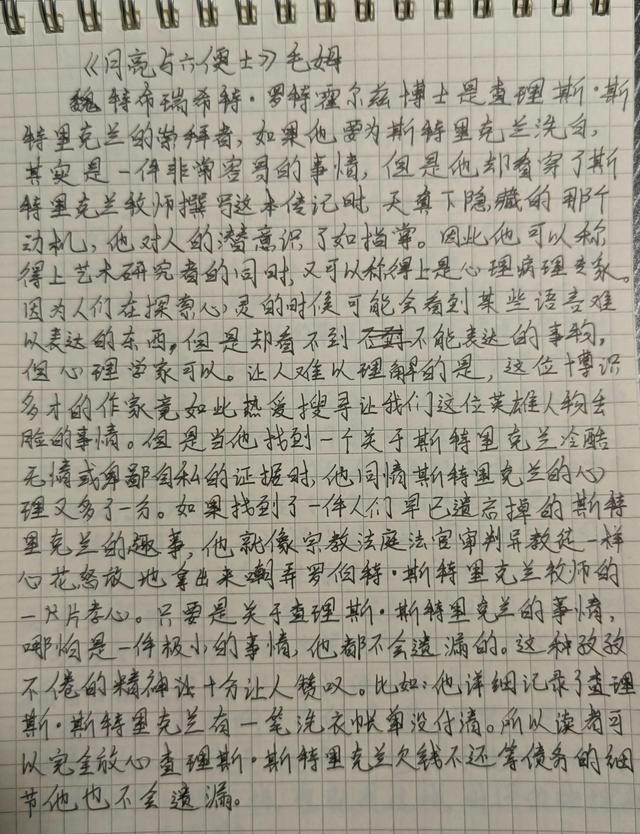 《月亮与六便士》毛姆
魏特希瑞希特·罗特霍尔兹博士是查理斯·斯
特里克兰的崇拜者,如果他要为斯特里克兰洗白,
其实是一件非常容易的事情,但是他却看穿了斯
特里克兰牧师撰写这本传记时,天真下隐藏的那个
动机,他对人的潜意识了如指掌。因此他可以称
得上艺术研究者的同时,又可以称得上是心理病理专家。
因为人们在探索心灵的时候可能会看到某些语言难
以表达的东西,但是却看不到不能表达的事物,
但心理学家可以。让人难以理解的是,这位博识
多才的作家竟如此热爱搜寻让我们这位英雄人物丢
脸的事情。但是当他找到一个关于斯特里克兰冷酷
无情或卑鄙自私的证据时,他同情斯特里克兰的心
理又多了一分。如果找到了一件人们早已遗忘掉的斯特
里克兰的趣事,他就像宗教法庭法官审判异教徒一样
心花怒放地拿出来嘲弄罗伯特·斯特里克兰牧师的
一片孝心。只要是关于查理斯·斯特里克兰的事情,
哪怕是一件极小的事情,他都不会遗漏的。这种孜孜
不倦的精神让十分让人赞叹。比如:他详细记录了查理
斯·斯特里克兰有一笔洗衣帐单没付清。所以读者可
以完全放心查理斯·斯特里克兰欠钱不还等债务的细
节他也不会遗漏。